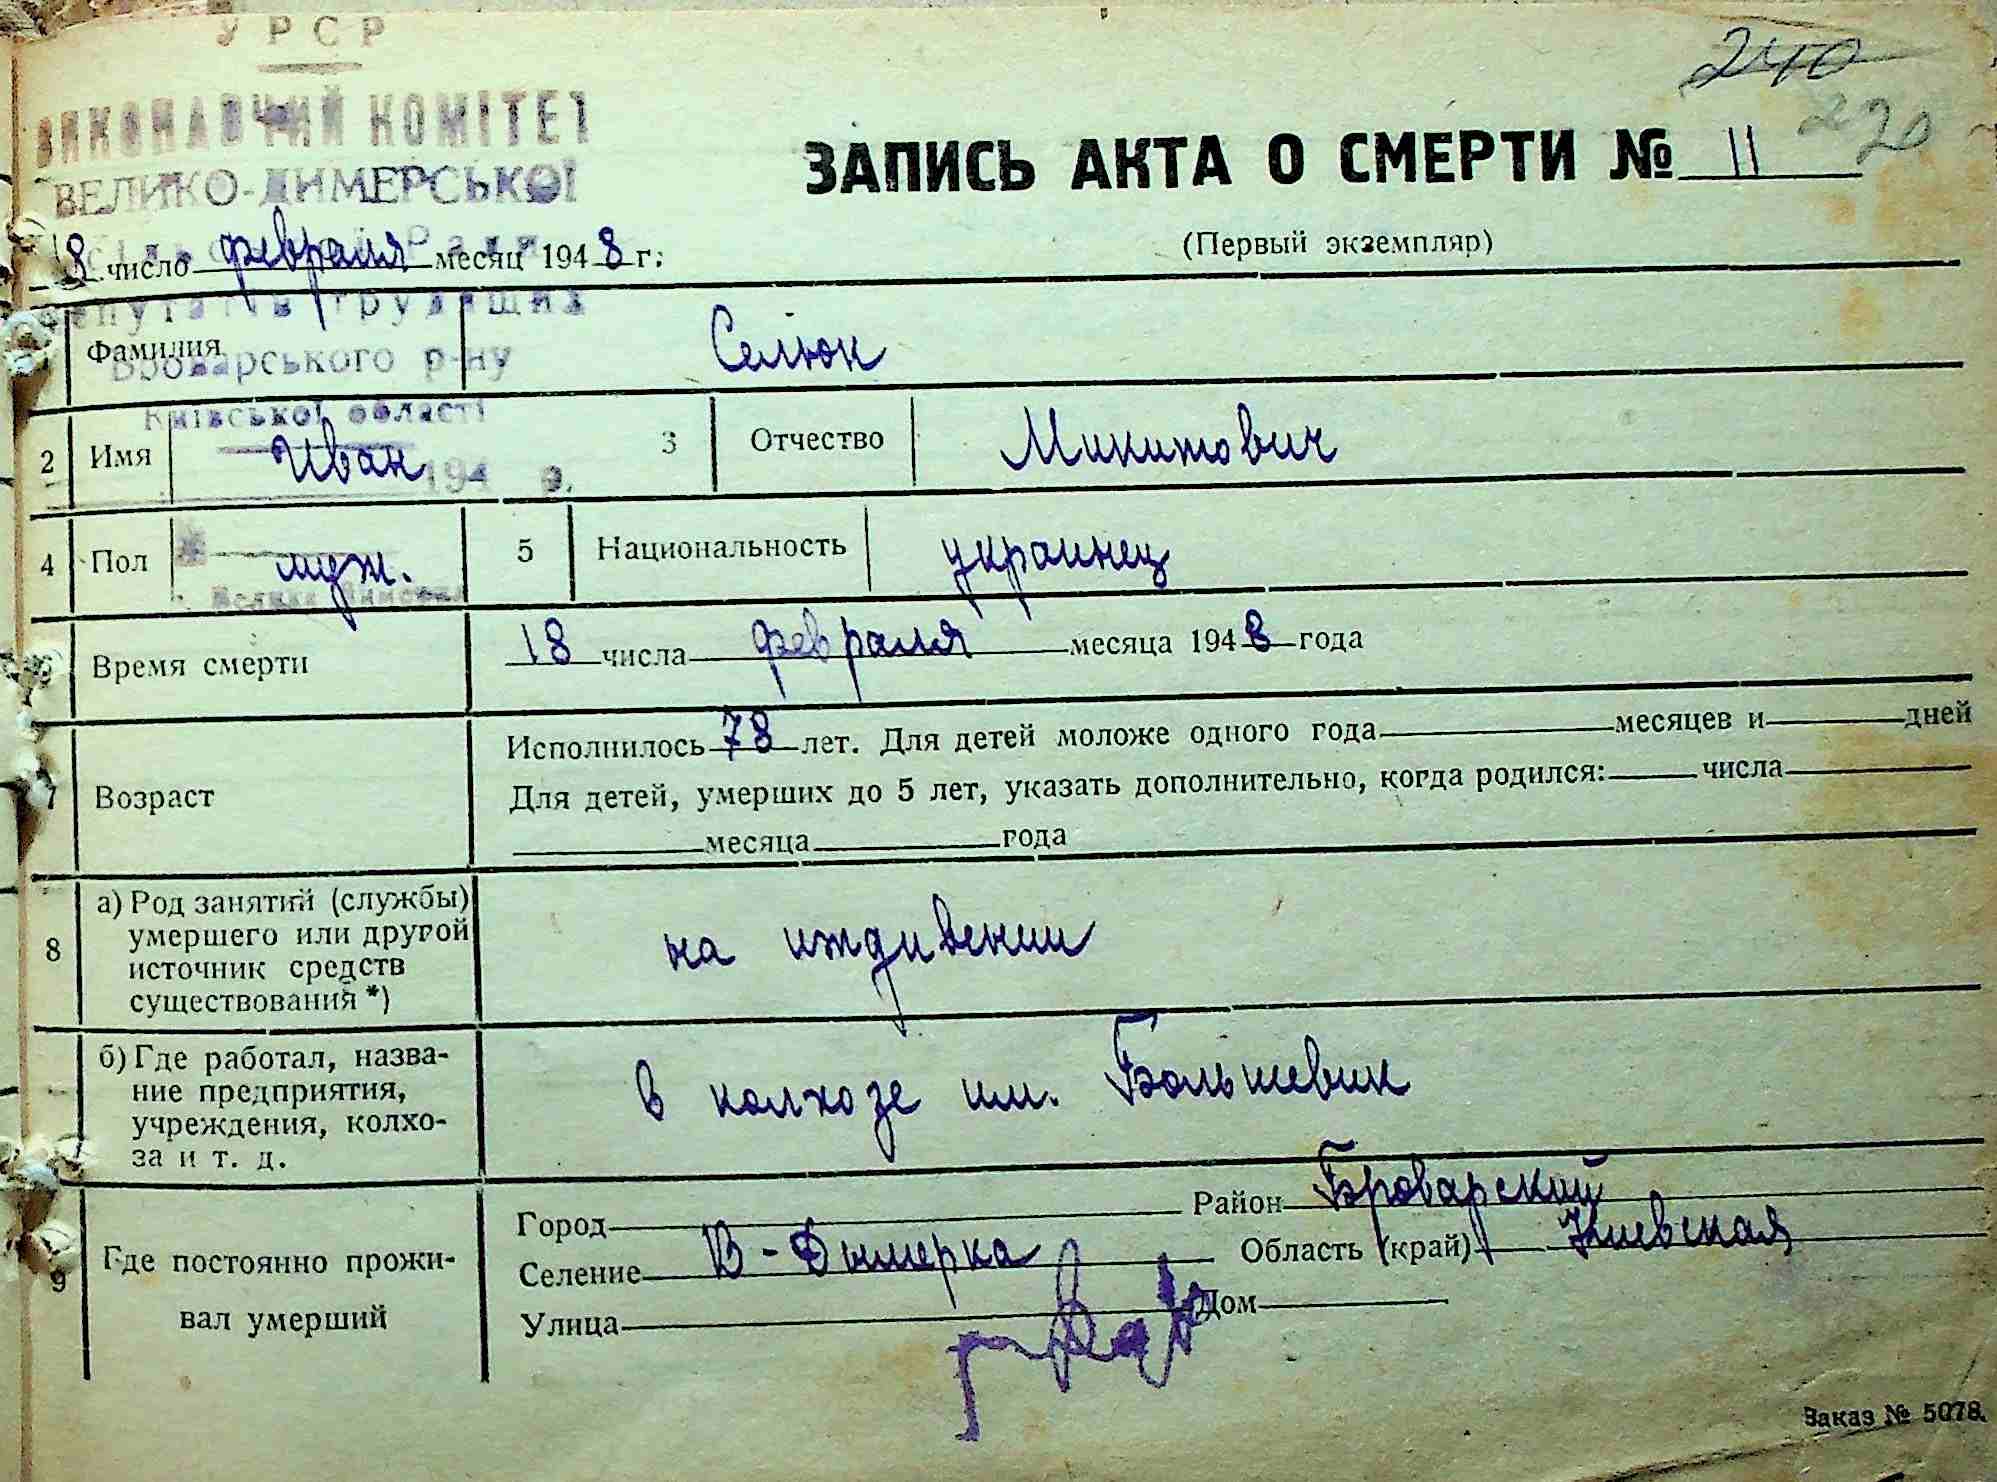 УРСР
ВИКОНАВЧИЙ КОМІТЕТ
ВЕЛИКО-ДИМЕРСЬКОЇ
Сільської Ради
депутатів трудящих
Броварського р-ну
Київської області
194 р.
240
220
ЗАПИСЬ АКТА О СМЕРТИ № 11
(Первый экземпляр)
18 число февраля месяц 1948 г.
Фамилия Селюк
2 Имя Иван 3 Отчество Микитович
4 Пол муж. 5 Национальность украинец
6 Время смерти 18 числа февраля месяца 1948 года
7 Возраст Исполнилось 78 лет. Для детей моложе одного года месяцев и дней
Для детей, умерших до 5 лет, указать дополнительно, когда родился: числа
месяца года
8 а) Род занятий (службы)
умершего или другой
источник средств
существования *)
на иждивении
б) Где работал, назва-
ние предприятия,
учреждения, колхо-
за и т. д.
в колхозе им. Большевик
9 Где постоянно прожи-
вал умерший
Город Район Броварский
Селение В-Дымерка Область (край) Киевская
Улица Дом
Заказ № 5078.